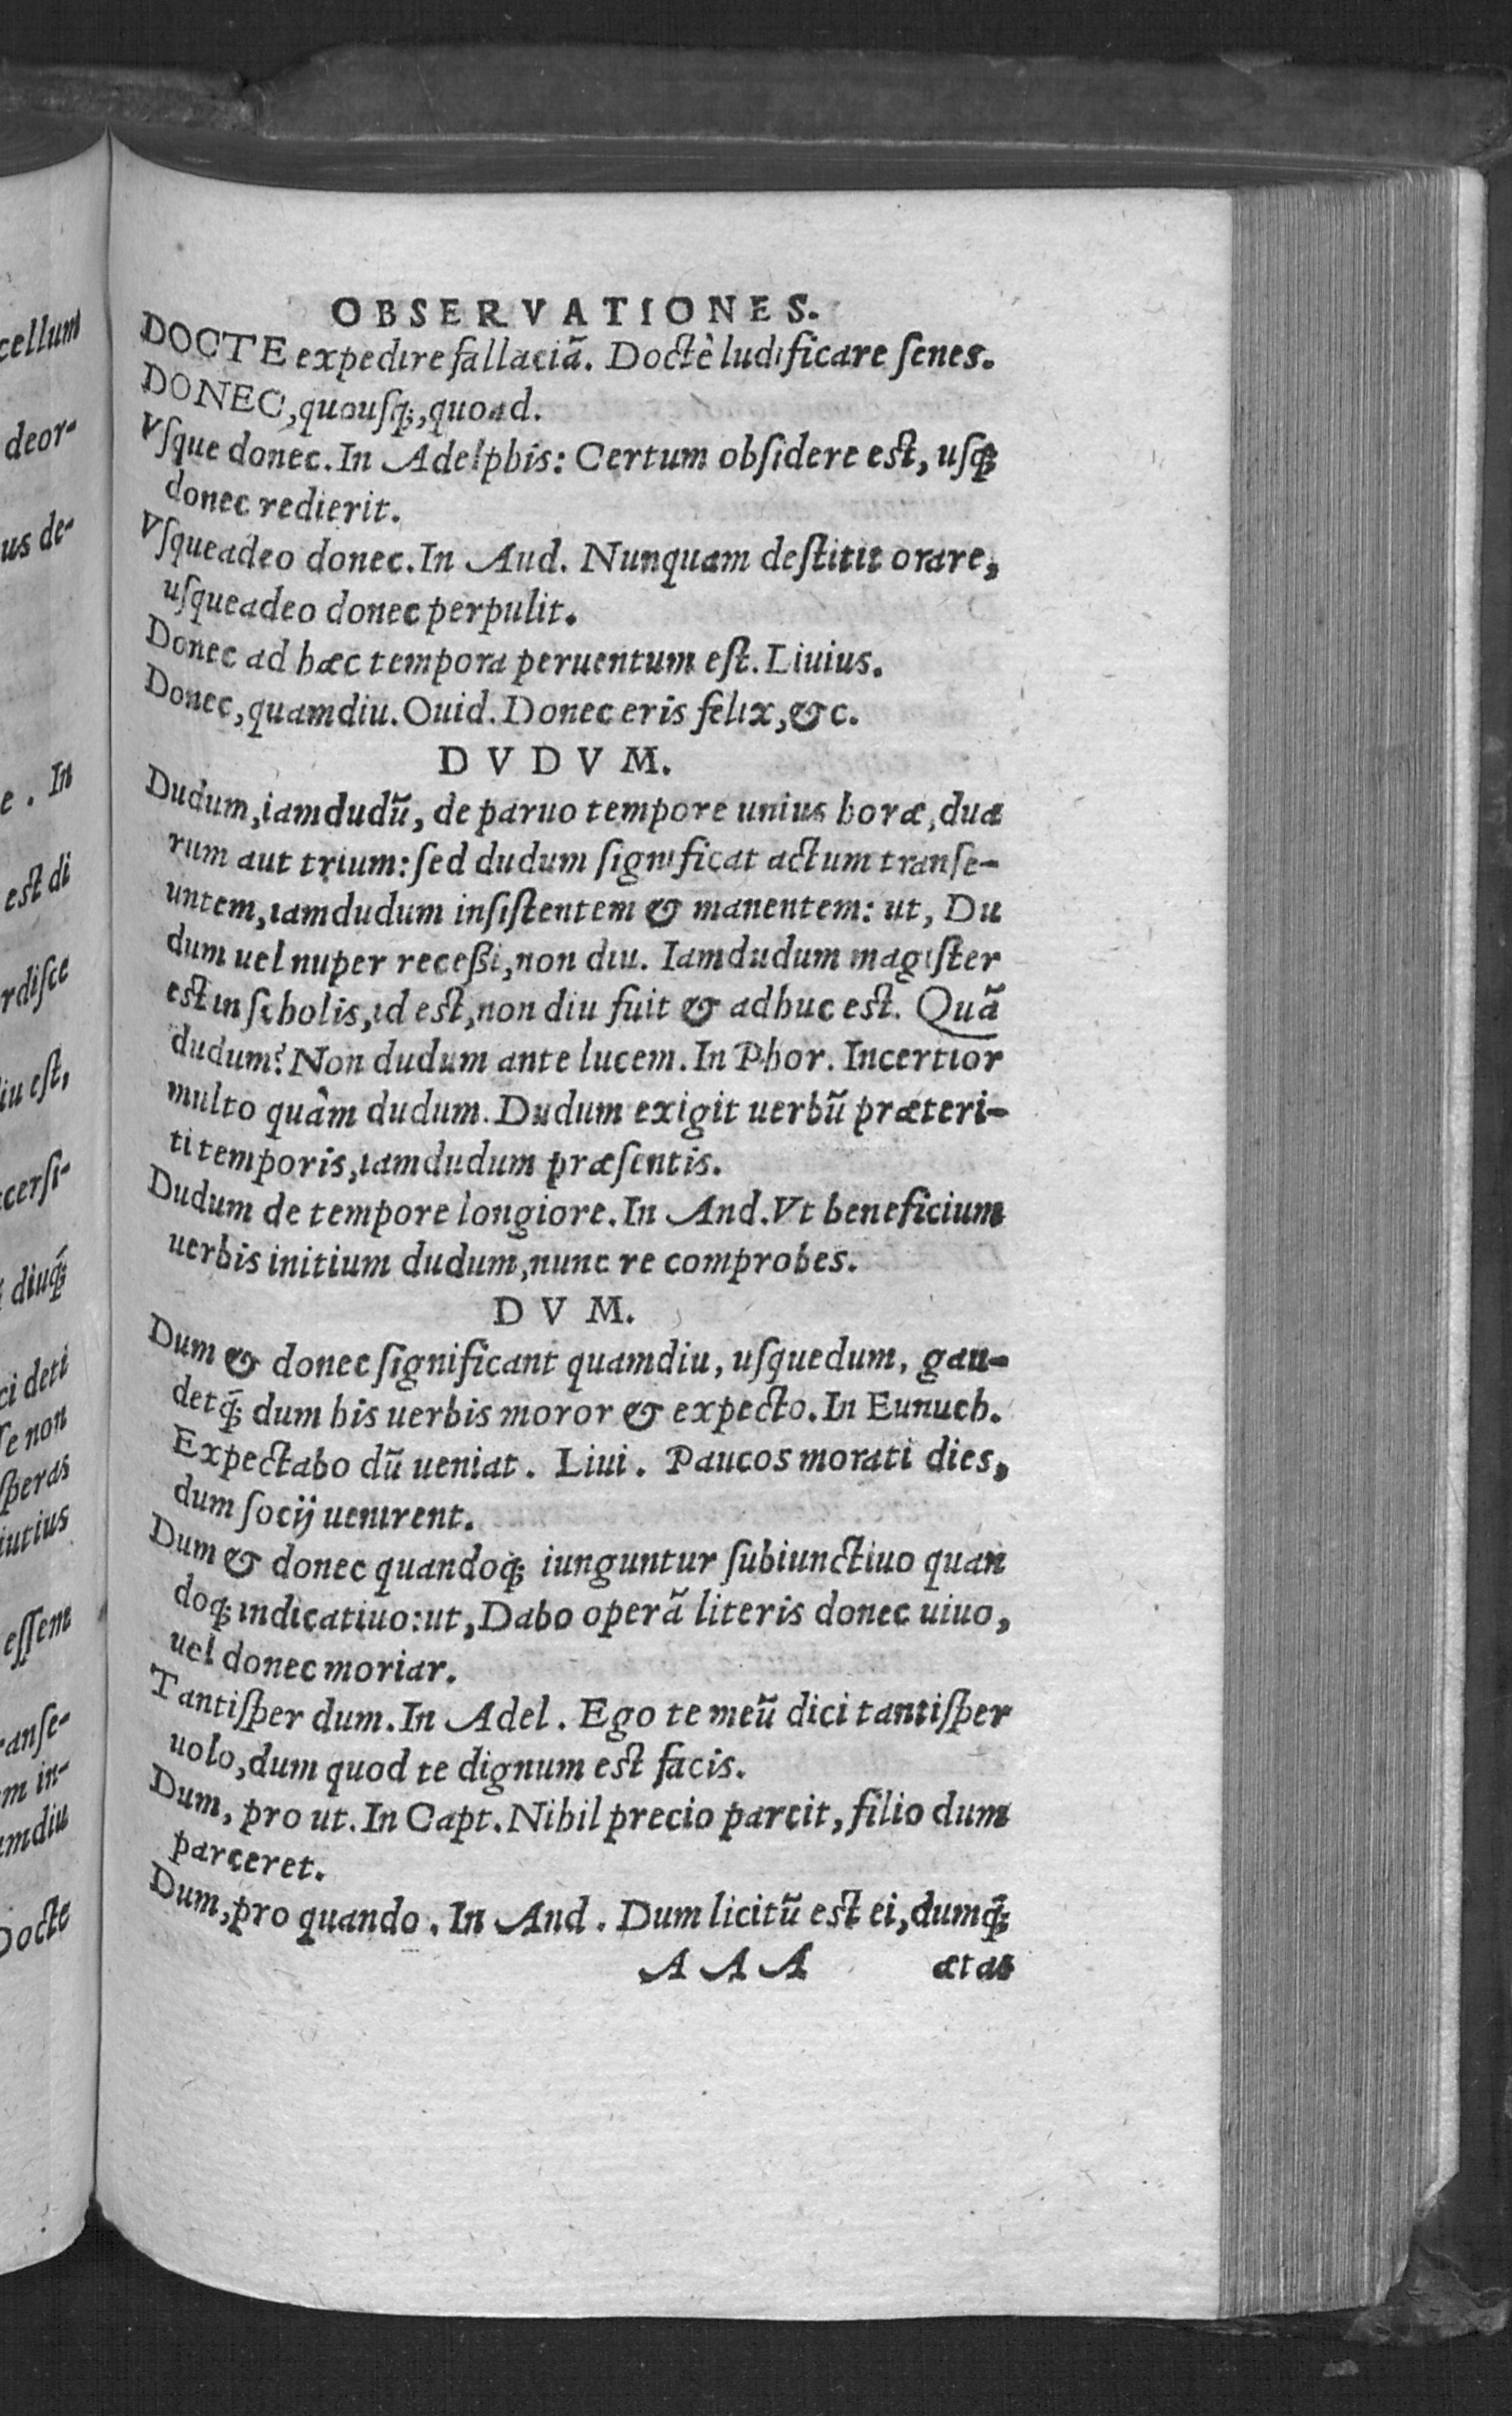 cellum
deor-
us de-
e. In
est di
rdiſce
iu eſt,
cersi-
diuq́;
ci deti
ſe non
ſperas
iutius
eſſent
ranſe-
m in-
mdiu
Docte
OBSERVATIONES.
DOCTE expedire fallaciã. Doctè ludificare ſenes.
DONEC, quouſq;, quoad.
Vſque donec. In Adelphis: Certum obſidere est, uſq;
donec redierit.
Vſqueadeo donec. In Aud. Nunquam deſtitit orare,
uſqueadeo donec perpulit.
Donec ad hæc tempora peruentum eſt. Liuius.
Donec, quamdiu. Ouid. Donec eris felix, &c.
DVDVM.
Dudum, iamdudũ, de paruo tempore unius horæ, dua
rum aut trium: ſed dudum ſignificat actum tranſe-
untem, iamdudum inſiſtentem & manentem: ut, Du
dum uel nuper receßi, non diu. Iamdudum magiſter
est in ſcholis, id est, non diu fuit & adhuc est. Quã
dudum? Non dudum ante lucem. In Phor. Incertior
multo quàm dudum. Dudum exigit uerbũ præteri-
ti temporis, iamdudum præſentis.
Dudum de tempore longiore. In And. Vt beneficium
uerbis initium dudum, nunc re comprobes.
DVM.
Dum & donec ſignificant quamdiu, uſquedum, gau-
detq́; dum his uerbis moror & expecto. In Eunuch.
Expectabo dũ ueniat. Liui. Paucos morati dies,
dum ſocij uenirent.
Dum & donec quandoq; iunguntur ſubiunctiuo quan
doq; indicatiuo: ut, Dabo operã literis donec uiuo,
uel donec moriar.
Tantiſper dum. In Adel. Ego te meũ dici tantiſper
uolo, dum quod te dignum est facis.
Dum, pro ut. In Capt. Nihil precio parcit, filio dum
parceret.
Dum, pro quando. In And. Dum licitũ est ei, dumq́;
AAA ætas